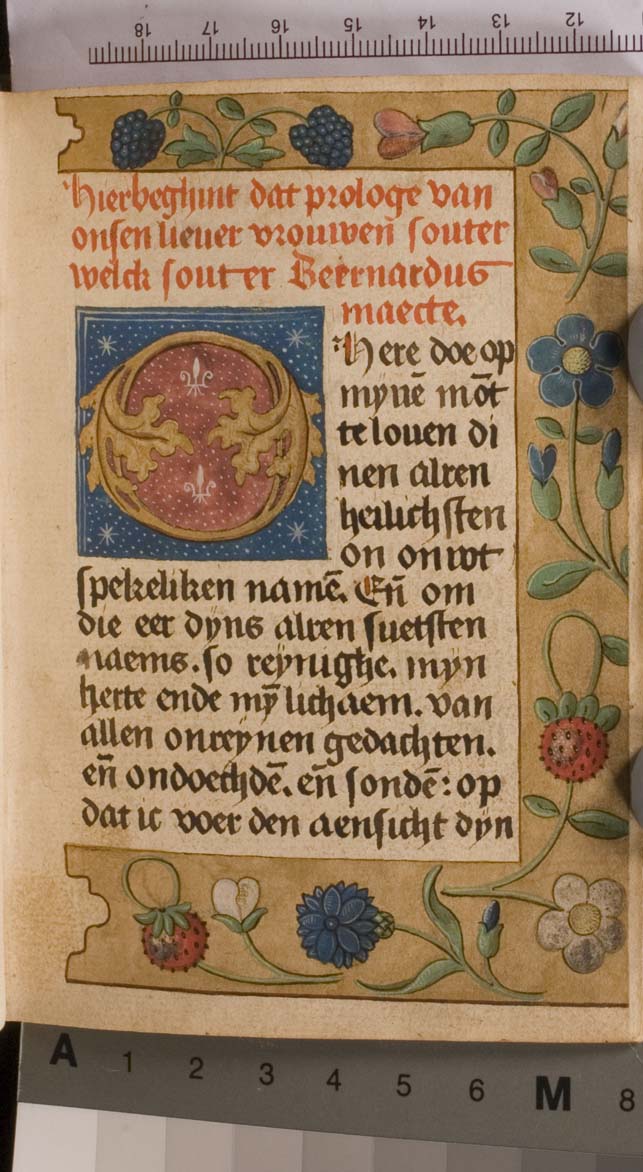 18 17 16 15 14 13 12
Hierbeghint dat prologe van
onsen lieuer vrouwen souter
welck souter Beernardus
maecte.
Here doe op
mynē mōt
te louen di
nen alren
heilichsten
on onwt
spekeliken namē. Eñ om
die eer dyns alren suetsten
naems. so reynighe. mijn
herte ende mȳ lichaem. van
allen onreynen gedachten.
eñ ondoechdē. eñ sondē: op
dat ic voer den aensicht dijn
A 1 2 3 4 5 6 M 8